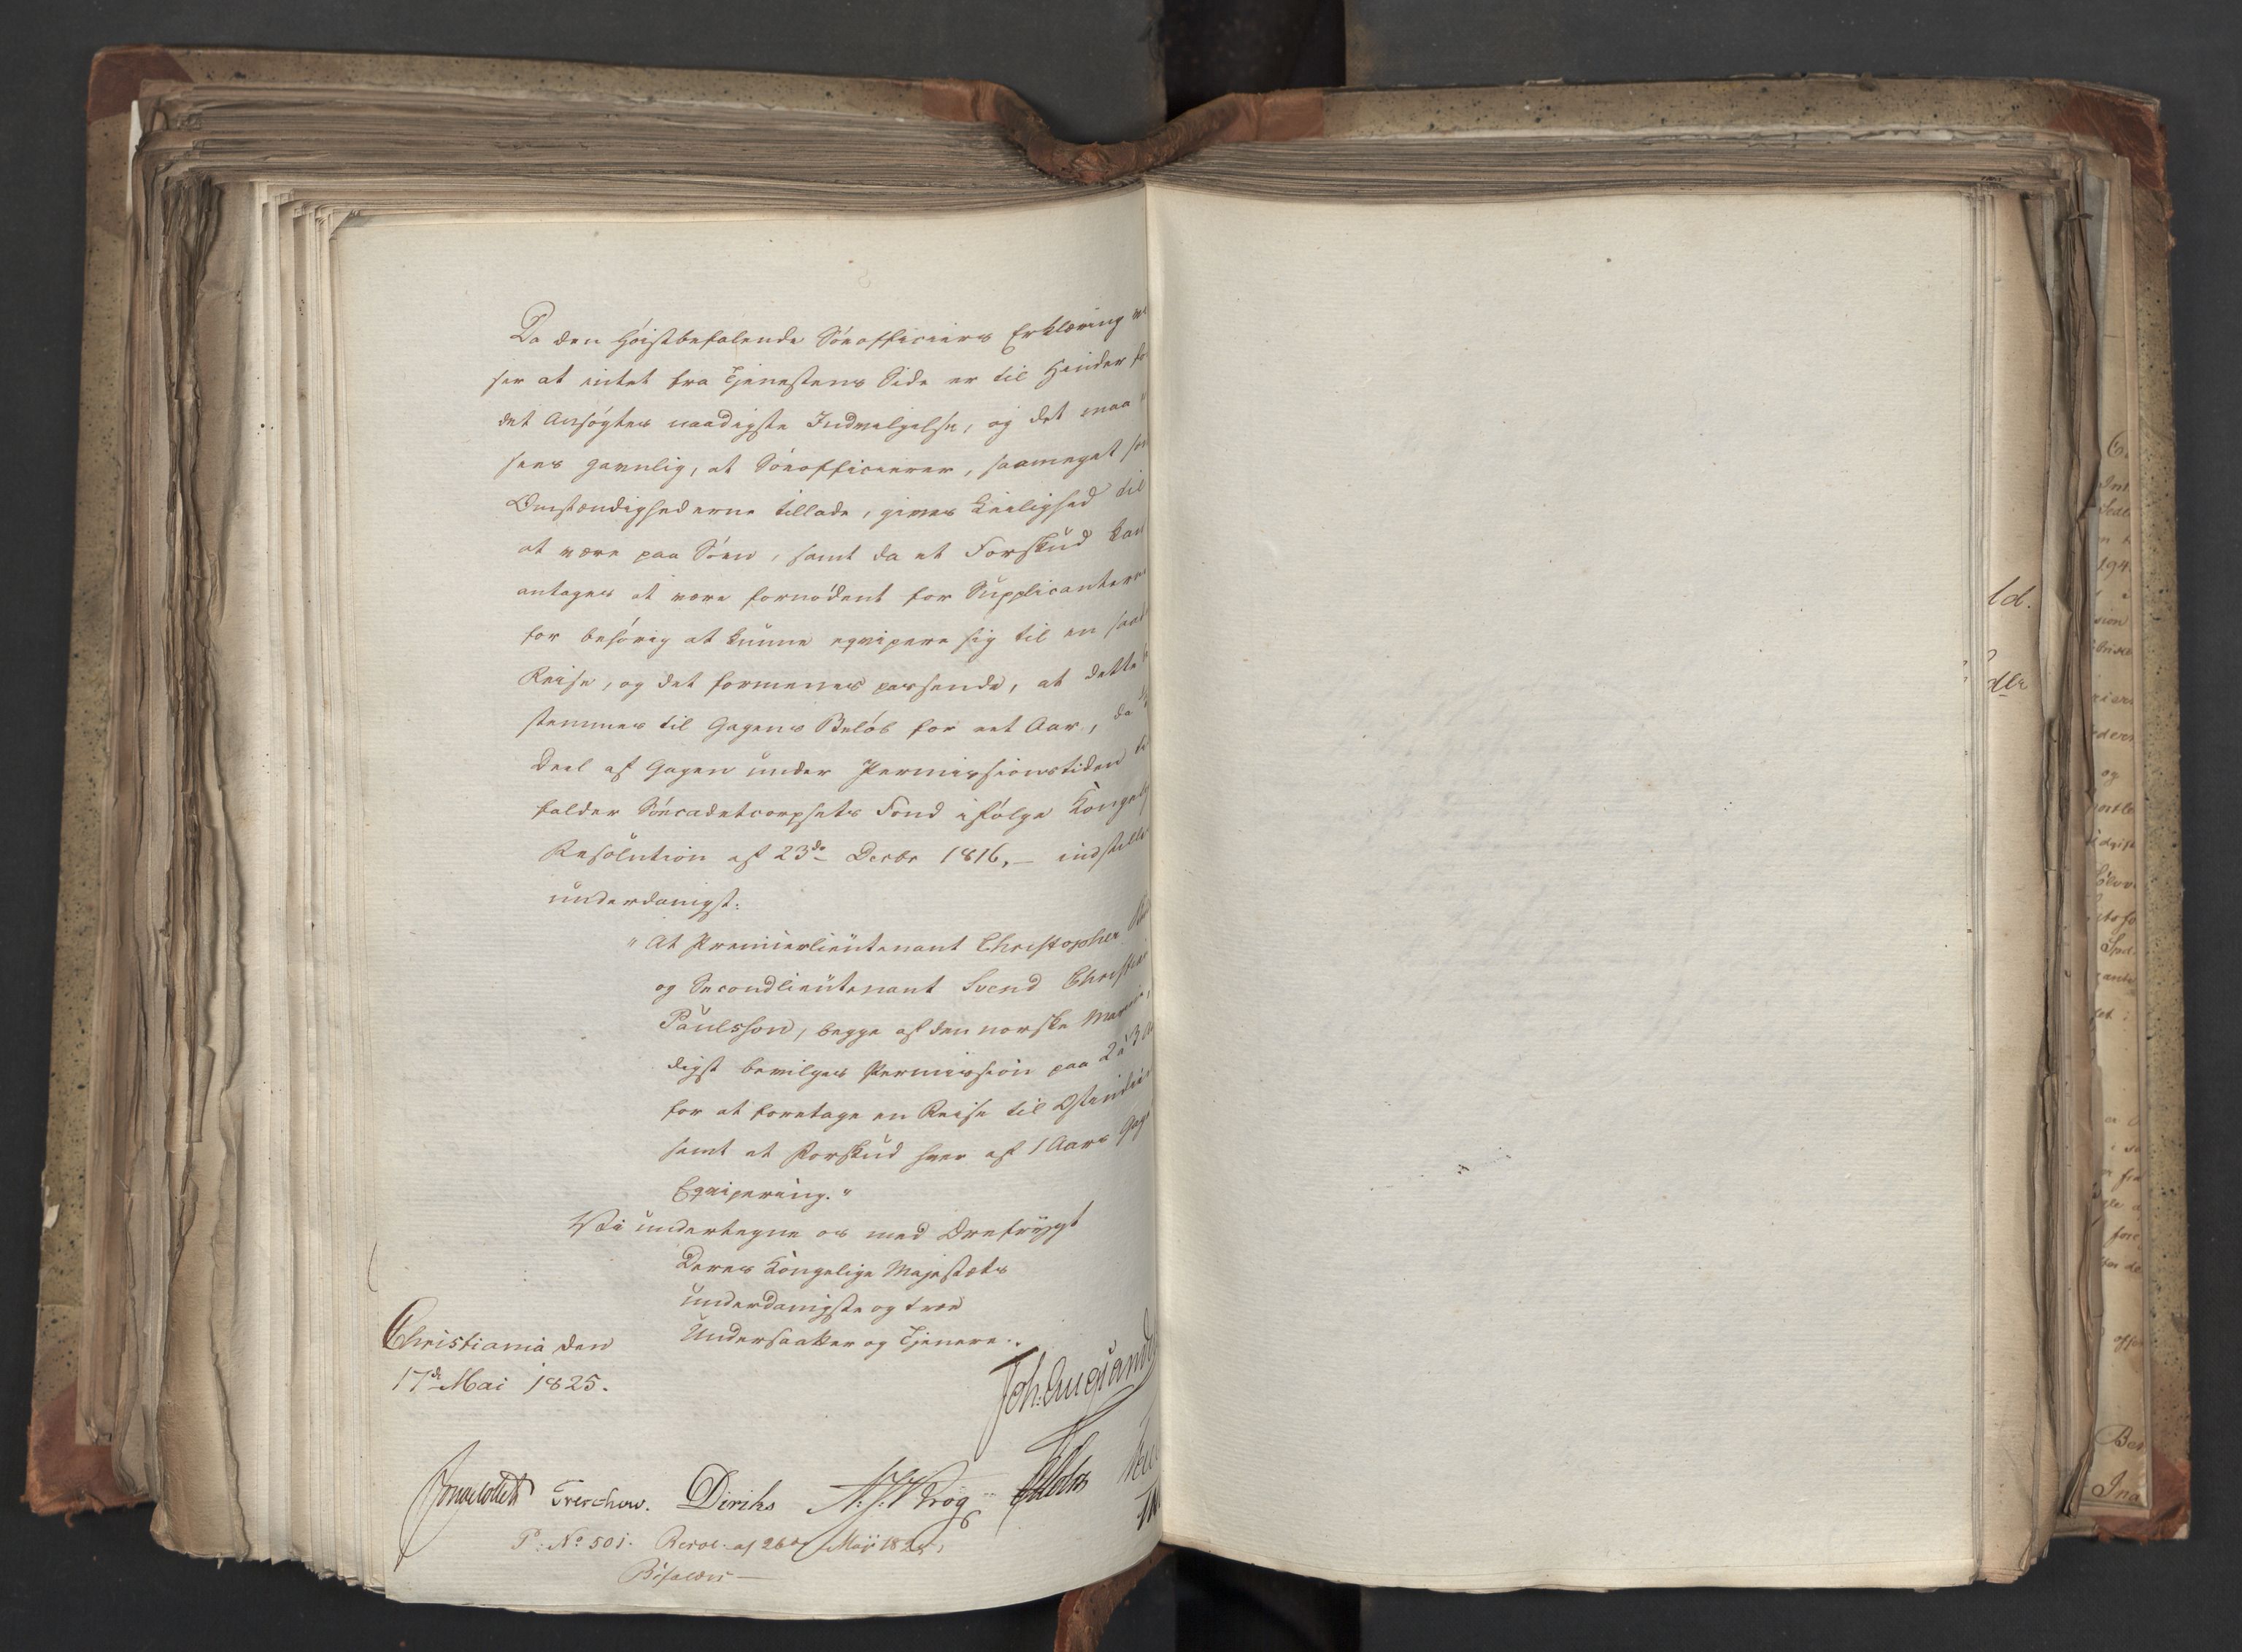 Da den Høistbefalende Søeofficiers Erklæring
ser at intet fra Tjenestens Side er til Hinder
det Ansøgtes naadigste Indvilgelse, og det maa
sees gavnlig, at Søeofficierer, saameget som
Omstændighederne tillade, gives Leilighed til
at være paa Søen, samt da et Forskud kan
antages at være fornødent for Supplicanterne
for behørig at kunne eqvipere sig til en saad
Reise, og det formenes passende, at dette
stemmes til Gagens Beløb for eet Aar, da
Deel af Gagen under Permissionstiden
falder Søecadetcorpsets Fond ifølge Kongelig
Resolution af 23de Decbr 1816, – indstilles
underdanigst:
"At Premierlieutenant Christopher
og Secondlieutenant Svend Christian
Paulsson, begge af den norske Marine,
digst bevilges Permission paa 2 à 3
for at foretage en Reise til Ostindien
samt et Forskud hver af 1 Aars Gage
Eqvipering."
Vi undertegne os med Ærefrygt
Deres Kongelige Majestæts
underdanigste og troe
Undersaatter og Tjenere.
Christiania den
17de Mai 1825.
Joh. Aug. Sandels
Jonas Collett Treschow. Diriks A: J: Krog
P: No 501. Resol. af 26de Maji 1825,
Bifaldes —
ld.